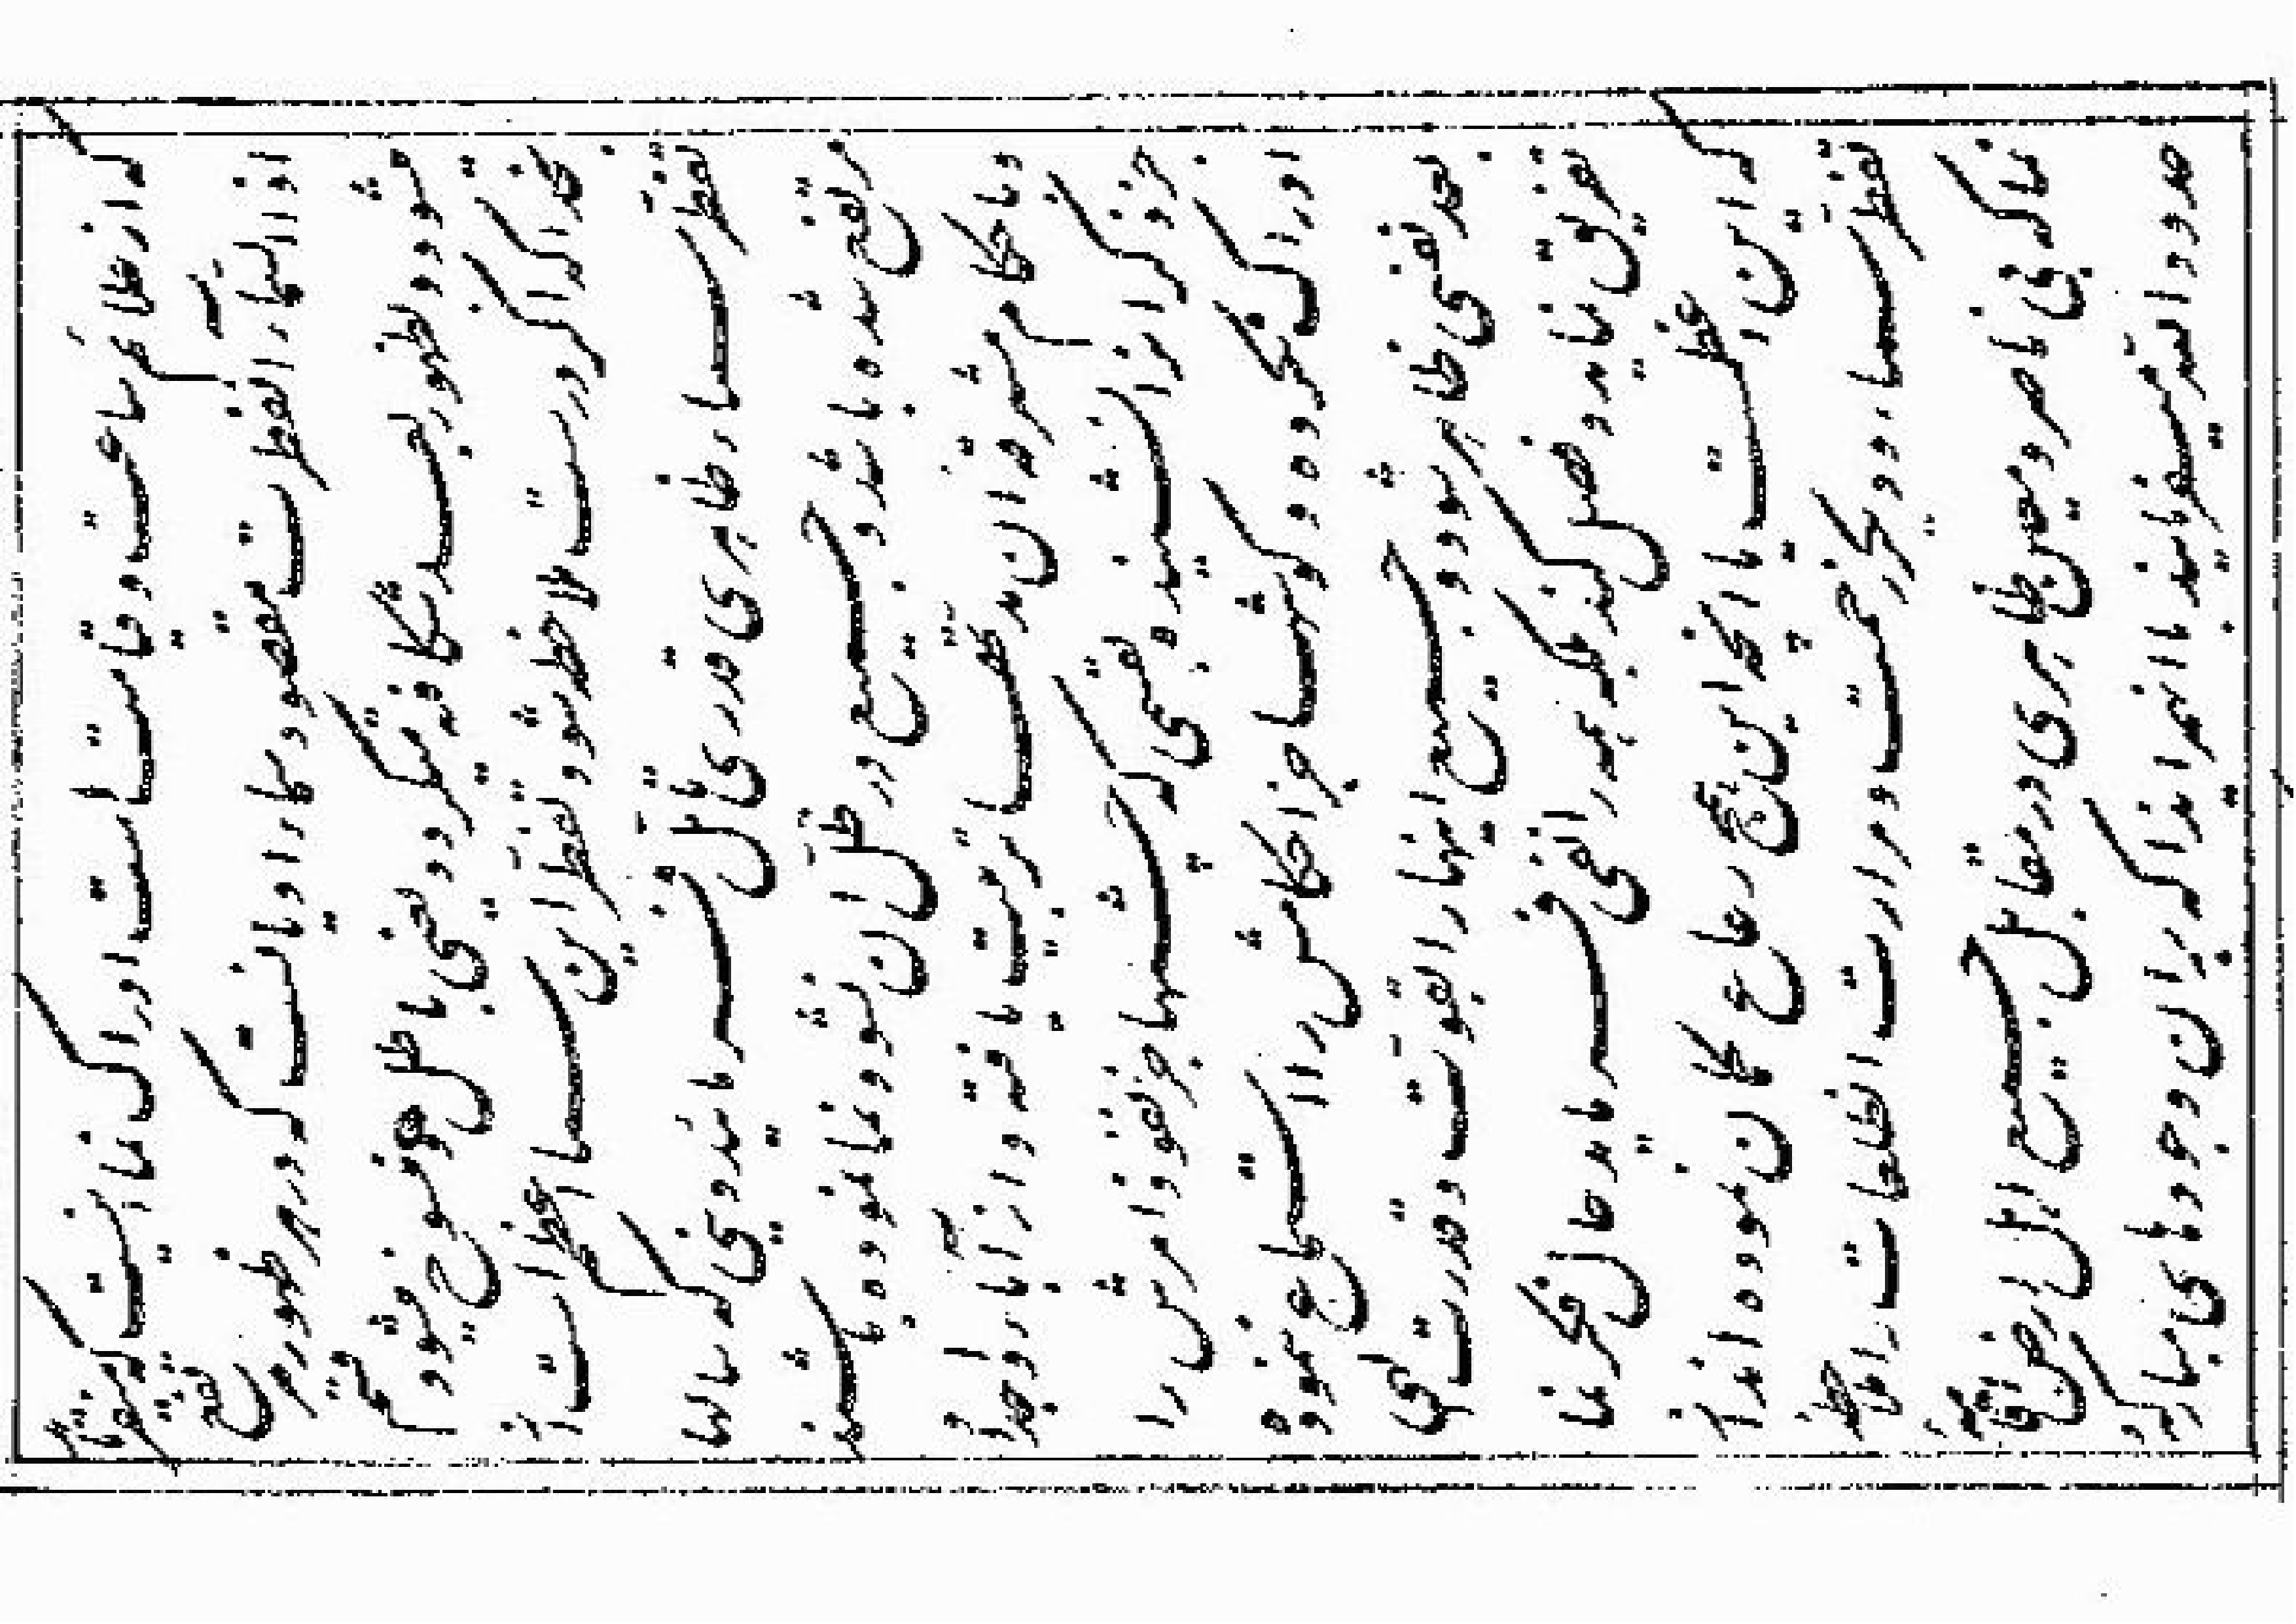 که از علائم ساعت و قیامت است ادراک نما اینست که میفرماید
اذا السماء انفطرت مقصود سماء ادیانست که در هر ظهور مرتفع
میشود و بظهور بعد شکافته میگردد یعنی باطل و منسوخ میشود قسم
بخدا که اگر درست ملاحظه شود تفطر این سماء اعظم است از
تفطر سماء ظاهری قدری تأمل فرمائید دینی که سالها
مرتفع شده باشد و جمیع در ظل آن نشو و نما نموده باشند
و باحکام مشرقه آن تربیت یافته و از آباء و اجداد
جز ذکر آن نشنیده بقسمی که چشمها جز نفوذ امرش را
ادراک ننموده و گوشها جز احکامش را استماع ننموده
بعد نفسی ظاهر شود و جمیع اینها را بقوت و قدرت الهی
تفریق نماید و فصل کند بلکه همه را نفی فرماید حال فکر نما
که این اعظم است یا آنچه این همج رعاع گمان نموده‌اند از
تفطر سماء و دیگر زحمت و مرارت آن طلعات را ملاحظه
نما که بی ناصر و معین ظاهری در مقابل جمیع اهل ارض اقامه
حدود الله میفرمایند با آنهمه ایذا که بر آن وجودهای مبارکه